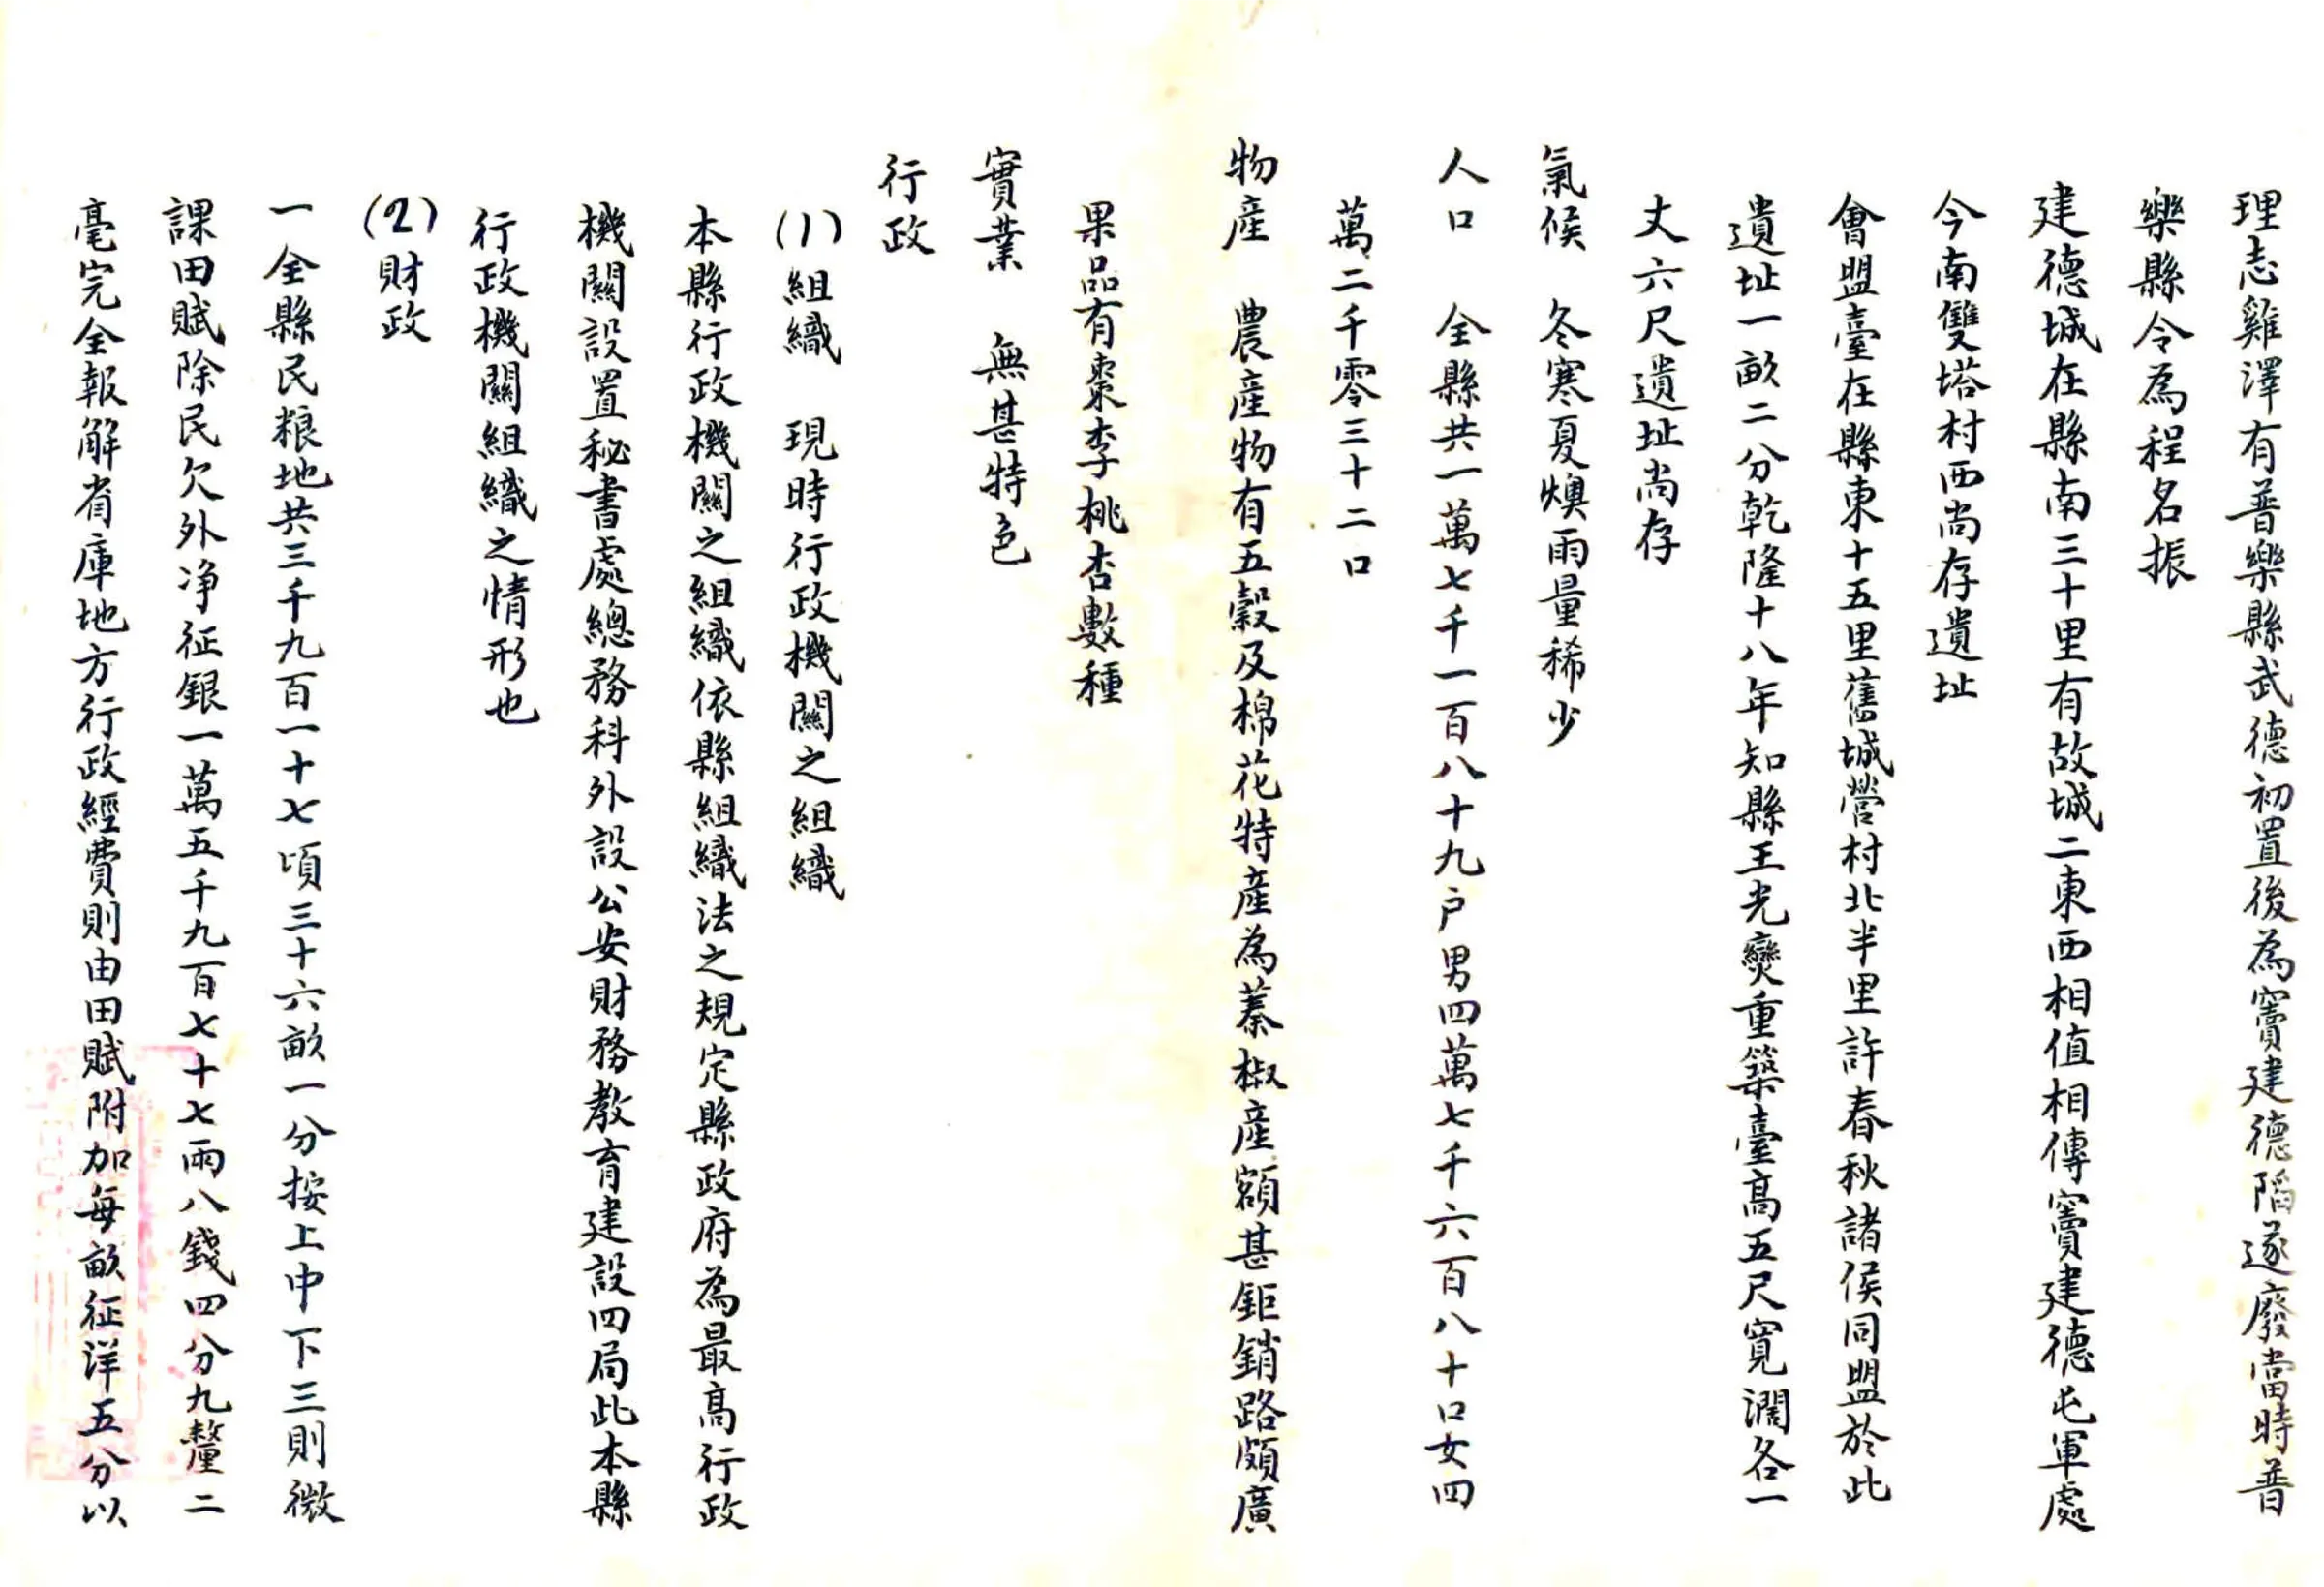 理志雞澤有普樂縣武德初置後為竇建德陷遂廢當時普
樂縣令為程名振
建德城在縣南三十里有故城二東西相值相傳竇建德屯軍處
今南雙塔村西尚存遺址
會盟臺在縣東十五里舊城營村北半里許春秋諸侯同盟於此
遺址一畝二分乾隆十八年知縣王光燮重築臺高五尺寬濶各一
丈六尺遺址尚存
氣候　冬寒夏燠雨量稀少
人口　全縣共一萬七千一百八十九户男四萬七千六百八十口女四
萬二千零三十二口
物產　農產物有五穀及棉花特產為蓁椒產額甚鉅銷路頗廣
果品有棗李桃杏數種
實業　無甚特色
行政
(1)組織　現時行政機關之組織
本縣行政機關之組織依縣組織法之規定縣政府為最高行政
機關設置秘書處總務科外設公安財務教育建設四局此本縣
行政機關組織之情形也
(2)財政
一全縣民粮地共三千九百一十七頃三十六畝一分按上中下三則微
課田賦除民欠外净征銀一萬五千九百七十七兩八錢四分九釐二
毫完全報解省庫地方行政經費則由田賦附加每畝征洋五分以